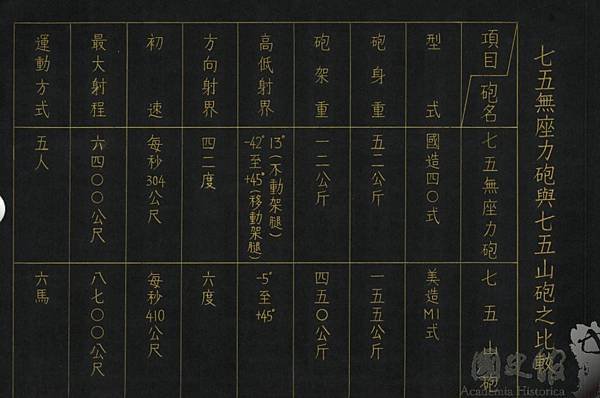 七五無座力砲與七五山砲之比較
項目 砲名 七五無座力砲 七五山砲
型式 國造四〇式 美造M1式
砲身重 五二公斤 一一五五公斤
砲架重 一二公斤 四五〇公斤
高低射界 13°(不動架腿) -42°至+45°(移動架腿) -5°至+45°
方向射界 四二度 六度
初速 每秒304公尺 每秒410公尺
最大射程 六四〇〇公尺 八七〇〇公尺
運動方式 五人 六馬
國史館
Academia Historica